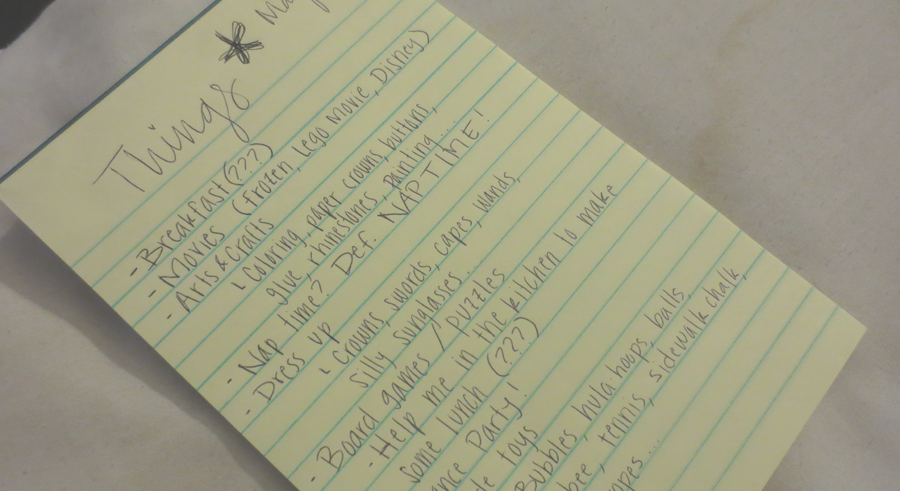 Things *
- Breakfast (???)
- Movies (Frozen, Lego Movie, Disney)
- Arts & Crafts
Coloring, paper crowns, buttons,
glue, rhinestones, painting...
- Nap time? Def. NAP TIME!
- Dress up
Crowns, swords, capes, wands,
silly sunglasses...
- Board games / puzzles
- Help me in the kitchen to make
some lunch (???)
Party!
toys
Bubbles, hula-hoops, balls,
tennis, sidewalk chalk,